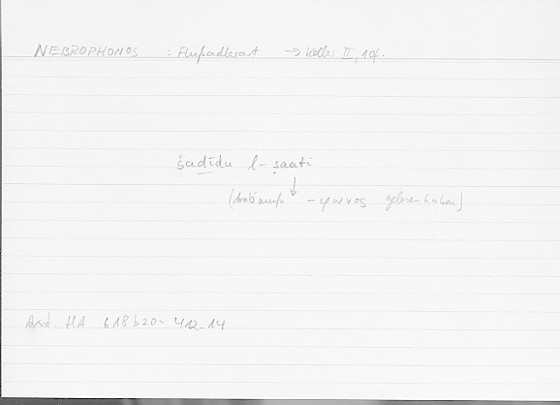 NEBROPHONOS : Flußadlerart → Keller II, 10f.
šadīdu l-ṣaati
↓
(Arab. muß -φωνος gelesen haben)
Arist. HA 618b20 - 412.14